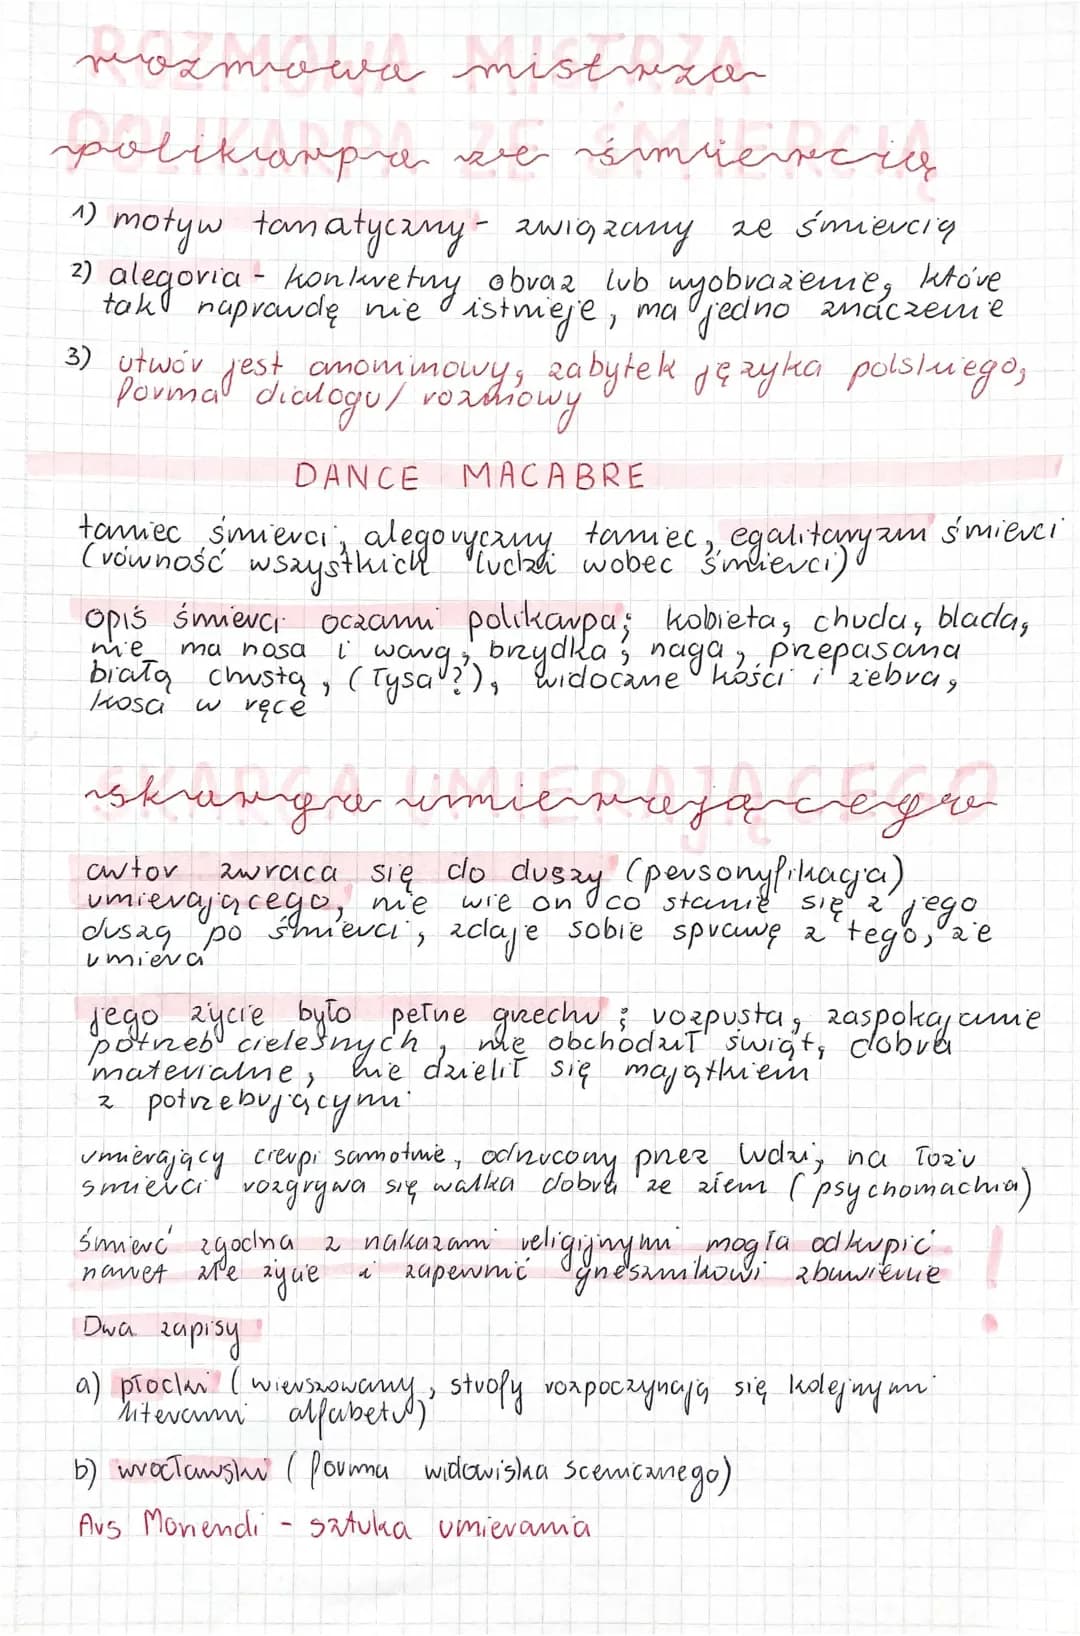 rozmowa mistrza
polikarpa ze śmiercią
1) motyw tanatyczny - związany ze śmiercią
2) alegoria - konkretny obraz lub wyobrażenie, które
tak naprawdę nie istnieje, ma jedno znaczenie
3) utwór jest anonimowy, zabytek języka polskiego,
forma dialogu/ rozmowy
DANCE MACABRE
taniec śmierci, alegoryczny taniec, egalitaryzm śmierci
(równość wszystkich ludzi wobec śmierci)
opis śmierci oczami polikarpa; kobieta, chuda, blada,
nie ma nosa i warg, brzydka, naga, przepasana
białą chustą, (łysa?), widoczne kości i żebra,
kosa w ręce
skarga umierającego
autor zwraca się do duszy (personyfikacja)
umierającego, nie wie on co stanie się z jego
duszą po śmierci, zdaje sobie sprawę z tego, że
umiera
jego życie było pełne grzechu; rozpusta, zaspokajanie
potrzeb cielesnych, nie obchodził świąt, dobra
materialne, nie dzielił się majątkiem
z potrzebującymi
umierający cierpi samotnie, odrzucony przez ludzi, na łożu
śmierci rozgrywa się walka dobra ze złem (psychomachia)
śmierć zgodna z nakazami religijnymi mogła odkupić
nawet złe życie i zapewnić grzesznikowi zbawienie !
Dwa zapisy
a) płocki (wierszowany, strofy rozpoczynają się kolejnymi
literami alfabetu)
b) wrocławski (forma widowiska scenicznego)
Ars Moriendi - sztuka umierania